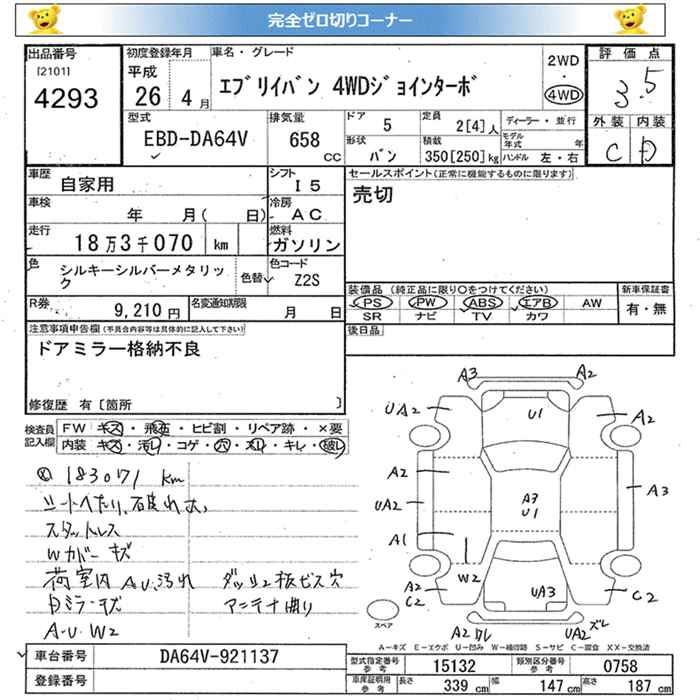 完全ゼロ切りコーナー
出品番号
[2101]
4293
初度登録年月
平成
26 4月
車名・グレード
エブリイバン 4WDジョインターボ
2WD
・
4WD
評価点
3.5
外装 内装
C D
型式
EBD-DA64V
排気量
658
CC
ドア
5
形状
バン
定員
2[4]人
積載
350[250]kg
ディーラー・並行
モデル年式 年
ハンドル 左・右
車歴
自家用
シフト
I5
車検
年 月( 日)
冷房
AC
走行
18万3千070 km
燃料
ガソリン
色
シルキーシルバーメタリック
色替
色コード
Z2S
R券
9,210円
名変通知期限
月 日
セールスポイント(正常に機能するものに限ります)
売切
装備品(純正品に限り○をつけてください)
PS PW ABS エアB AW
SR ナビ TV カワ
新車保証書
有・無
後日品
注意事項申告欄(不具合内容等は具体的に記入して下さい)
ドアミラー格納不良
修復歴 有〔箇所 〕
検査員
記入欄
FW キズ・飛石・ヒビ割・リペア跡・×要
内装 キズ・汚レ・コゲ・穴・スレ・キレ・破レ
183071 km
シートへたり、破れ大、
スタットレス
Wカバーキズ
荷室内 A,U,汚れ ダッシュ板ビス穴
Dミラーキズ アンテナ曲り
A-U.W2
A3 A2
UA2 U1 A2
A2
A3
U1
A3
UA2
A1
W2
A2
C2
UA3
C2
スペア
A2 ワレ UA2 ズレ
A-キズ E-エクボ U-凹み W-補修跡 S-サビ C-腐食 XX-交換済
車台番号
DA64V-921137
登録番号
型式指定番号
参考
15132
類別区分番号
参考
0758
車庫証明用
参考
長さ 339cm 幅 147cm 高さ 187cm